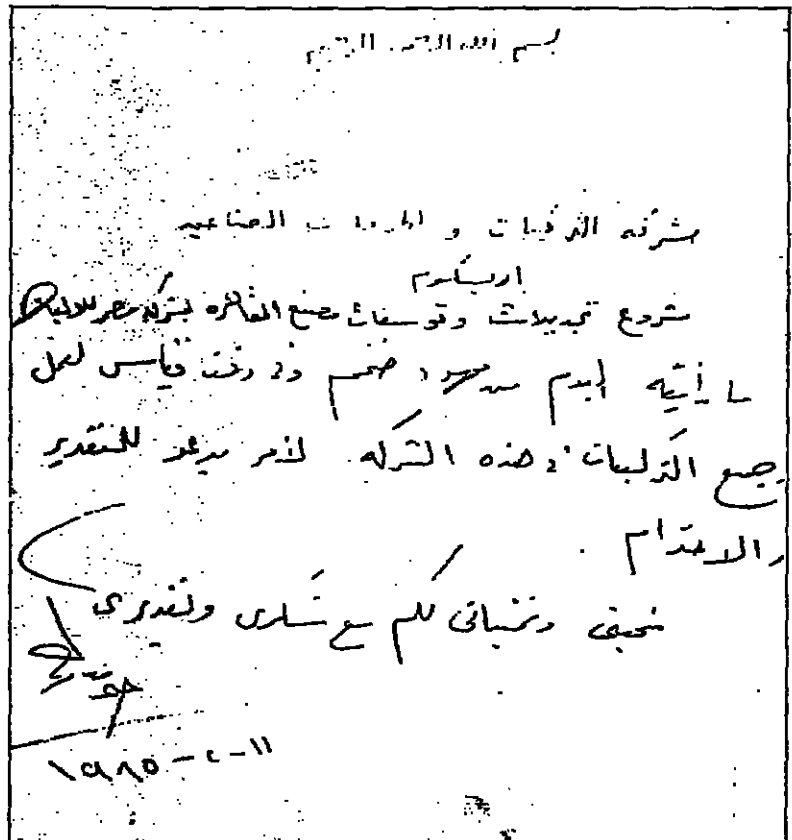 بسم الله الرحمن الرحيم
شركة التركيبات و الخدمات الصناعيه
اريسكوم
مشروع تجديدات وتوسعات مصنع القاهره لشركة مصر للالبان
ما رأيته اليوم من مجهود ضخم وفى وقت قياسى لعمل
جميع التركيبات فى هذه الشركه لأمر يدعو للتقدير
والاحترام .
تحيتى وتمنياتى لكم مع شكرى وتقديرى
١١-٢-١٩٨٥